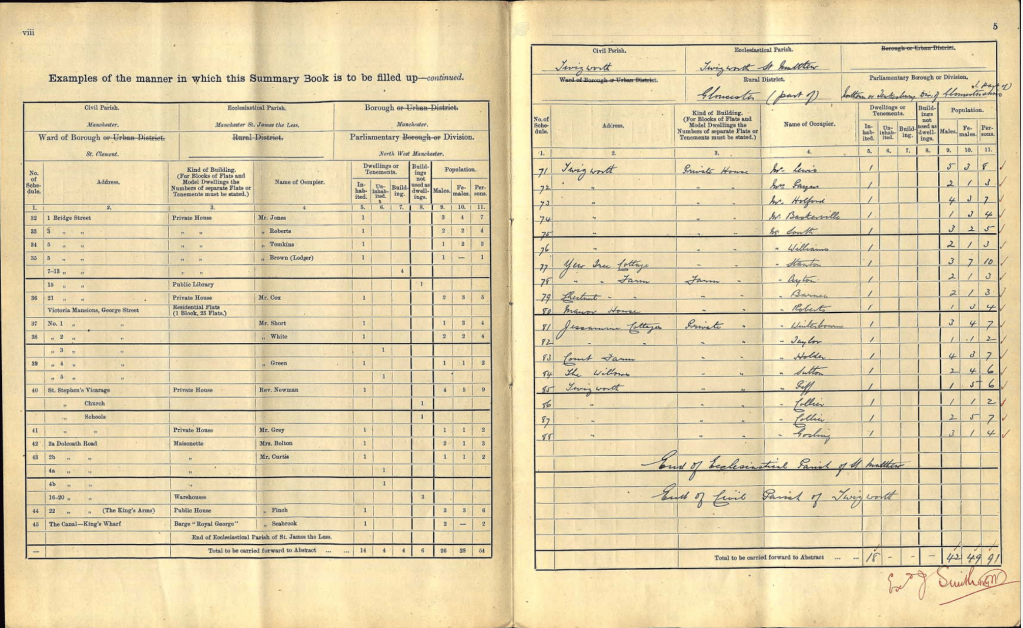 viii
Examples of the manner in which this Summary Book is to be filled up—continued.
Civil Parish. Ecclesiastical Parish. Borough or Urban District.
Manchester. Manchester St. James the Less. Manchester.
Ward of Borough or Urban District. Rural District. Parliamentary Borough or Division.
St. Clement. North West Manchester.
No. of Schedule. Address. Kind of Building. (For Blocks of Flats and Model Dwellings the Numbers of separate Flats or Tenements must be stated.) Name of Occupier. Dwellings or Tenements. Inhabited. Uninhabited. Building. Buildings not used as dwellings. Population. Males. Females. Persons.
1. 2. 3. 4 5. 6. 7. 8. 9. 10. 11.
32 1 Bridge Street Private House Mr. Jones 1 3 4 7
33 3 „ „ „ „ „ Roberts 1 2 2 4
34 5 „ „ „ „ „ Tomkins 1 1 2 3
35 5 „ „ „ „ „ Brown (Lodger) 1 1 — 1
7-13 „ „ „ „ 4
15 „ „ Public Library 1
36 21 „ „ Private House Mr. Cox 1 2 3 5
Victoria Mansions, George Street Residential Flats (1 Block, 25 Flats.)
37 No. 1 „ „ Mr. Short 1 1 3 4
38 „ 2 „ „ „ White 1 2 2 4
„ 3 „ „ 1
39 „ 4 „ „ „ Green 1 1 1 2
„ 5 „ „ 1
40 St. Stephen's Vicarage Private House Rev. Newman 1 4 5 9
„ Church 1
„ Schools 1
41 „ Private House Mr. Grey 1 1 1 2
42 2a Dolcoath Road Maisonette Mrs. Bolton 1 2 1 3
43 2b „ „ „ Mr. Curtis 1 1 1 2
4a „ „ „ 1
4b „ „ „ 1
16-20 „ „ Warehouses 3
44 22 „ „ (The King's Arms) Public House „ Finch 1 3 3 6
45 The Canal—King's Wharf Barge "Royal George" „ Seabrook 1 2 — 2
End of Ecclesiastical Parish of St. James the Less.
— Total to be carried forward to Abstract ... ... 14 4 4 6 26 28 54
5
Civil Parish. Ecclesiastical Parish. Borough or Urban District.
Twigworth Twigworth St Matthew
Ward of Borough or Urban District. Rural District. Parliamentary Borough or Division.
Gloucester (part of)
No. of Schedule. Address. Kind of Building. (For Blocks of Flats and Model Dwellings the Numbers of separate Flats or Tenements must be stated.) Name of Occupier. Dwellings or Tenements. Inhabited. Uninhabited. Building. Buildings not used as dwellings. Population. Males. Females. Persons.
1. 2. 3. 4. 5. 6. 7. 8. 9. 10. 11.
71 Twigworth Private House Mr. Lewis 1 5 3 8
72 " " " Mrs 1 2 1 3
73 " " " Mr. Holford 1 4 3 7
74 " " " Mr Baskerville 1 1 3 4
75 " " " Mr South 1 3 2 5
76 " " " " Williams 1 2 1 3
77 Yew Tree Cottage " " " Stanton 1 3 7 10
78 " " Farm Farm " " Ayton 1 2 1 3
79 Chestnut " " " Barnes 1 2 1 3
80 Manor House " " Roberts 1 1 3 4
81 Jessamine Cottages Private " " Winterbourne 1 3 4 7
82 " " " " Taylor 1 1 1 2
83 Court Farm " " " Holder 1 4 3 7
84 The Willows " " " Sutton 1 2 4 6
85 Twigworth " " 1 1 5 6
86 " " " " Collier 1 1 1 2
87 " " " " Collier 1 2 5 7
88 " " " " Gosling 1 3 1 4
End of Ecclesiastical Parish of St Matthew
End of Civil Parish of Twigworth
Total to be carried forward to Abstract ... ... 18 - - - 42 49 91
Smith